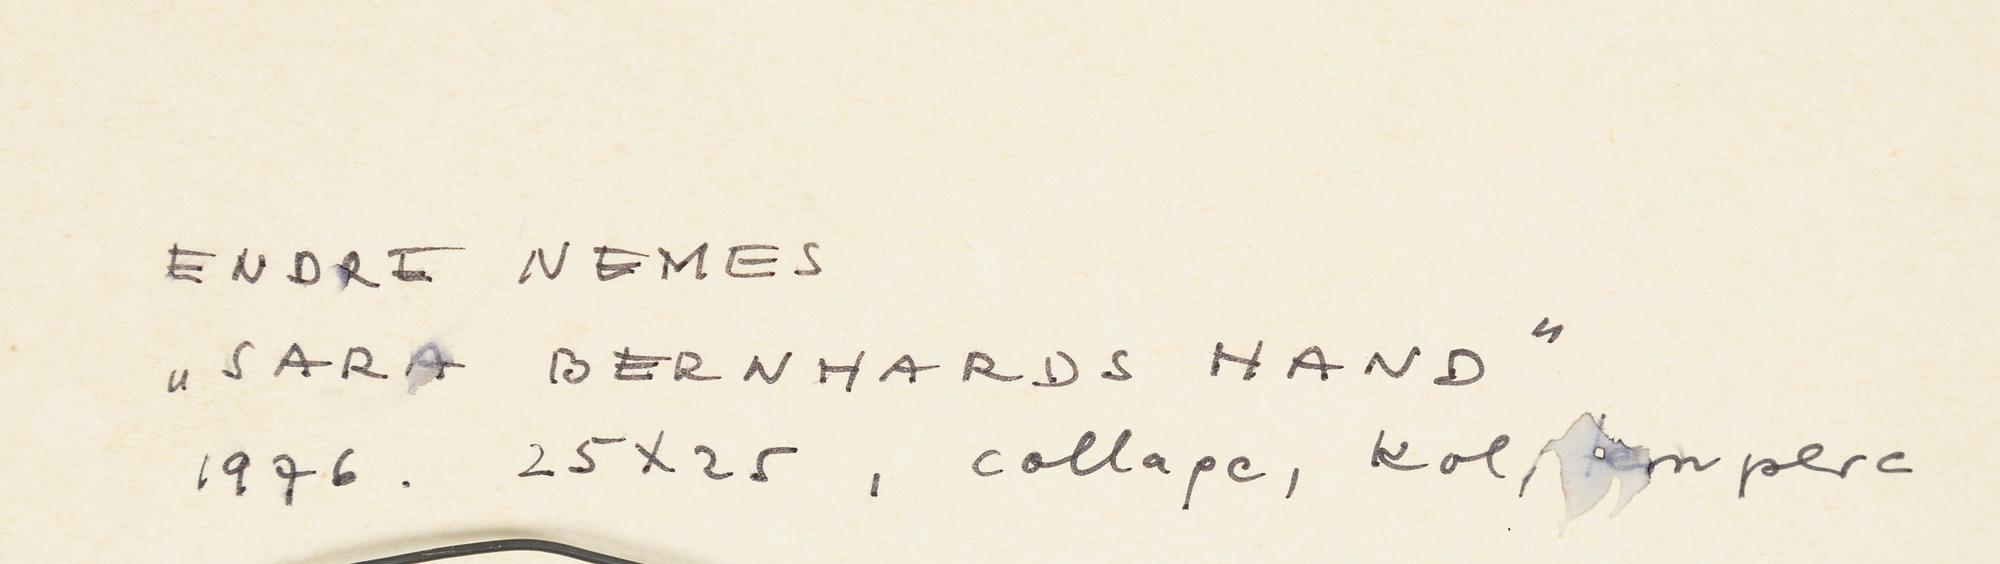 ENDRE NEMES
„SARA BERNHARDS HAND"
1976. 25X25, collage, kol, tempera